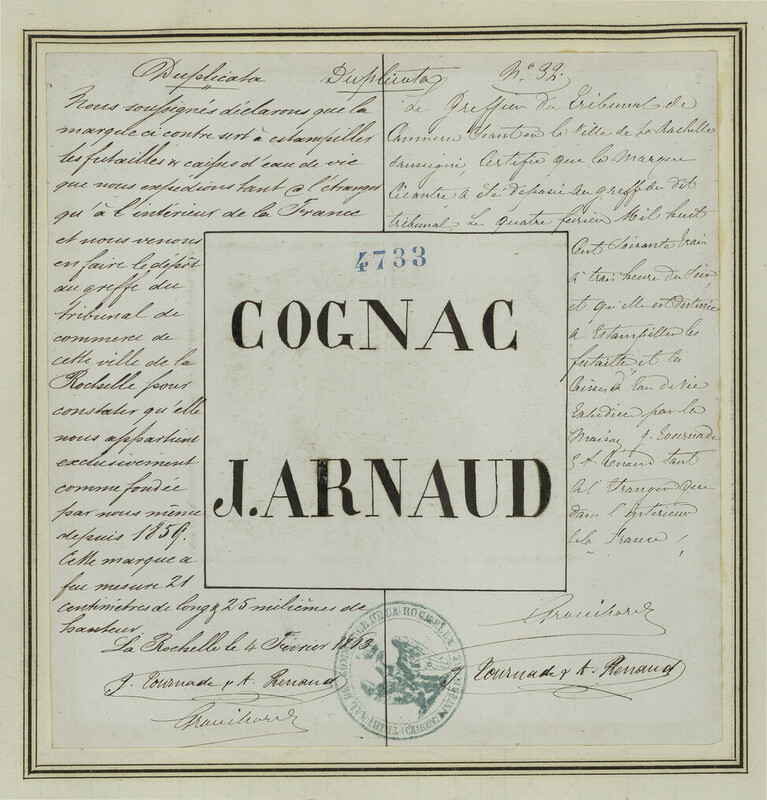 Duplicata
Nous soussignés déclarons que la
marque ci contre sert à estampiller
les futailles & caisses d'eau de vie
que nous expédions tant à l'étranger
qu'à l'intérieur de la France
et nous venons
en faire le dépôt
au greffe du
tribunal de
commerce de
cette ville de la
Rochelle pour
constater qu'elle
nous appartient
exclusivement
comme fondée
par nous même
depuis 1859.
Cette marque a
feu mesure 21
centimètres de long & 25 milièmes de
hauteur
La Rochelle le 4 Février 1863
J. Tournade & A. Renaud
Duplicata N° 32.
Le Greffier du Tribunal de
Commerce Séant en la Ville de La Rochelle
Soussigné, Certifie que la Marque
Cicontre a été déposée au greffe du dit
tribunal Le quatre février Mil huit
Cent Soixante trois
à trois heure du Soir,
et qu'elle est destinée
a Estampiller les
futaille et les
Caisses d'Eau de Vie
Expédiées par la
Maison J. Tournade
& A. Renaud tant
a l'Etranger que
dans l'intérieur
de la France
J. Tournade & A. Renaud
4733
COGNAC
J. ARNAUD